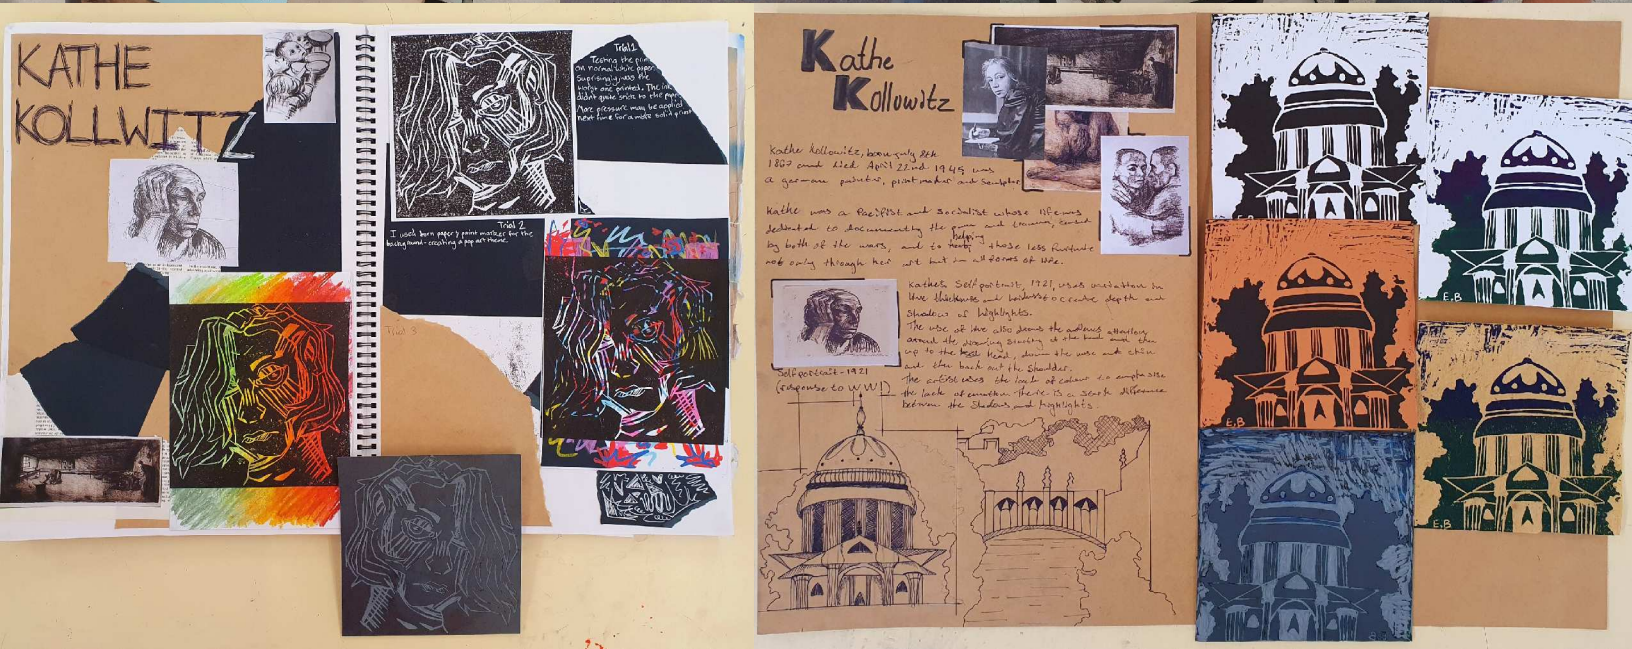 KATHE
KOLLWITZ
Trial 1
Testing the print
on normal white paper.
Suprisingly was the
worst one printed. The ink
didnt quite stick to the paper
More pressure may be applied
next time for a more solid print
Trial 2
I used torn paper & paint marker for the
background - creating a pop art theme.
Trial 3
Kathe
Kollowitz
Kathe Kollowitz, born July 8th
1867 and died April 22nd 1945 was
a german painter, printmaker and sculptor
Kathe was a Pacifist and socialist whose life was
dedicated to documenting the pain and trauma, caused
by both of the wars, and to helping those less fortunate
not only through her art but in all forms of life.
Kathes Self portrait, 1921, uses variation in
line thickness and to create depth and
shadow or highlights.
The use of line also draws the audiences attention
around the drawing starting at the hand and then
up to the head, down the nose and chin
and then back out the shoulder.
The artist uses the lack of colour to emphasise
the lack of emotion. There is a stark difference
between the shadows and highlights.
Self portrait - 1921
(response to WW1)
E.B
E.B
E.B
E.B